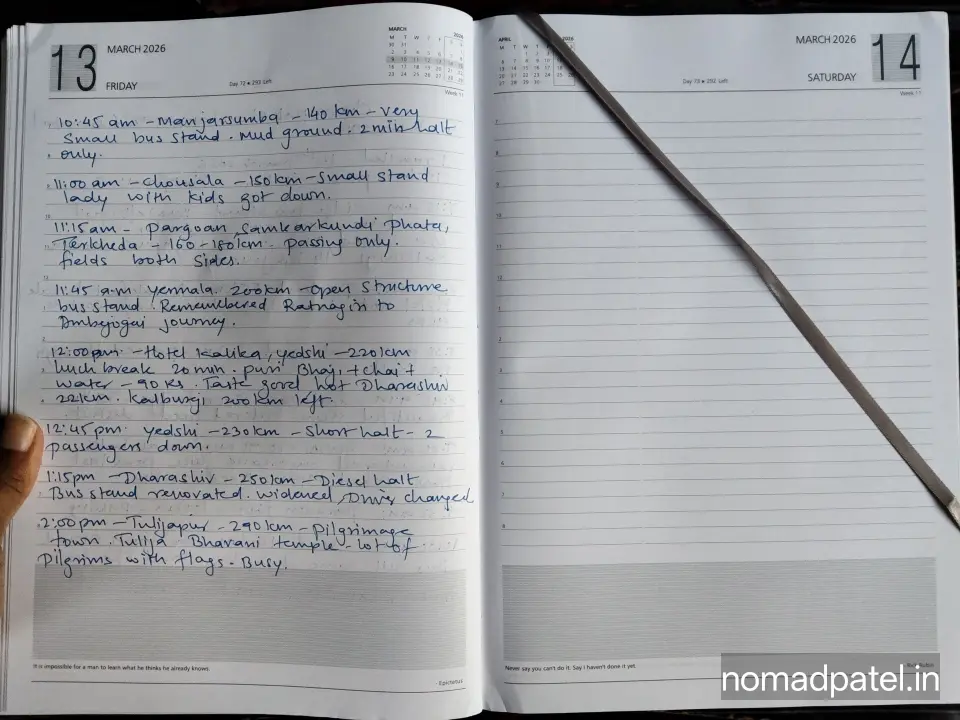 13
MARCH 2026
FRIDAY
Day 72 • 293 Left
MARCH 2026
M T W T F S S
Week 11
10:45 am - Manjarsumba - 140 km - very
Small bus stand. Mud ground. 2 min halt
only.
11:00 am - Chousala - 150 km - Small Stand
lady with kids got down.
11:15 am - Pargoan, Samkarkundi Phata,
Terkheda - 160 - 180 km. passing only.
fields both Sides.
11:45 a.m Yermala. 200km - Open Structure
bus stand. Remembered Ratnagiri to
Ambejogai journey.
12:00pm. - Hotel Kalika, yedshi - 220km
luch break 20 min. puri Bhaji + chai +
water - 90 Rs. Taste good hot Dharashiv
22km. Kalburgi 200 km left.
12:45 pm yedshi - 230km - Short halt - 2
passengers down.
1:15pm - Dharashiv - 250km - Diesel halt
Bus stand renovated. widened, Driver changed
2:00pm - Tuljapur - 290 km - Pilgrimage
town. Tulja Bhavani temple - lot of
Pilgrims with flags. Busy.
It is impossible for a man to learn what he thinks he already knows
- Epictetus
APRIL 2026
MARCH 2026
SATURDAY
14
Week 11
Never say you can't do it. Say I haven't done it yet.
nomadpatel.in